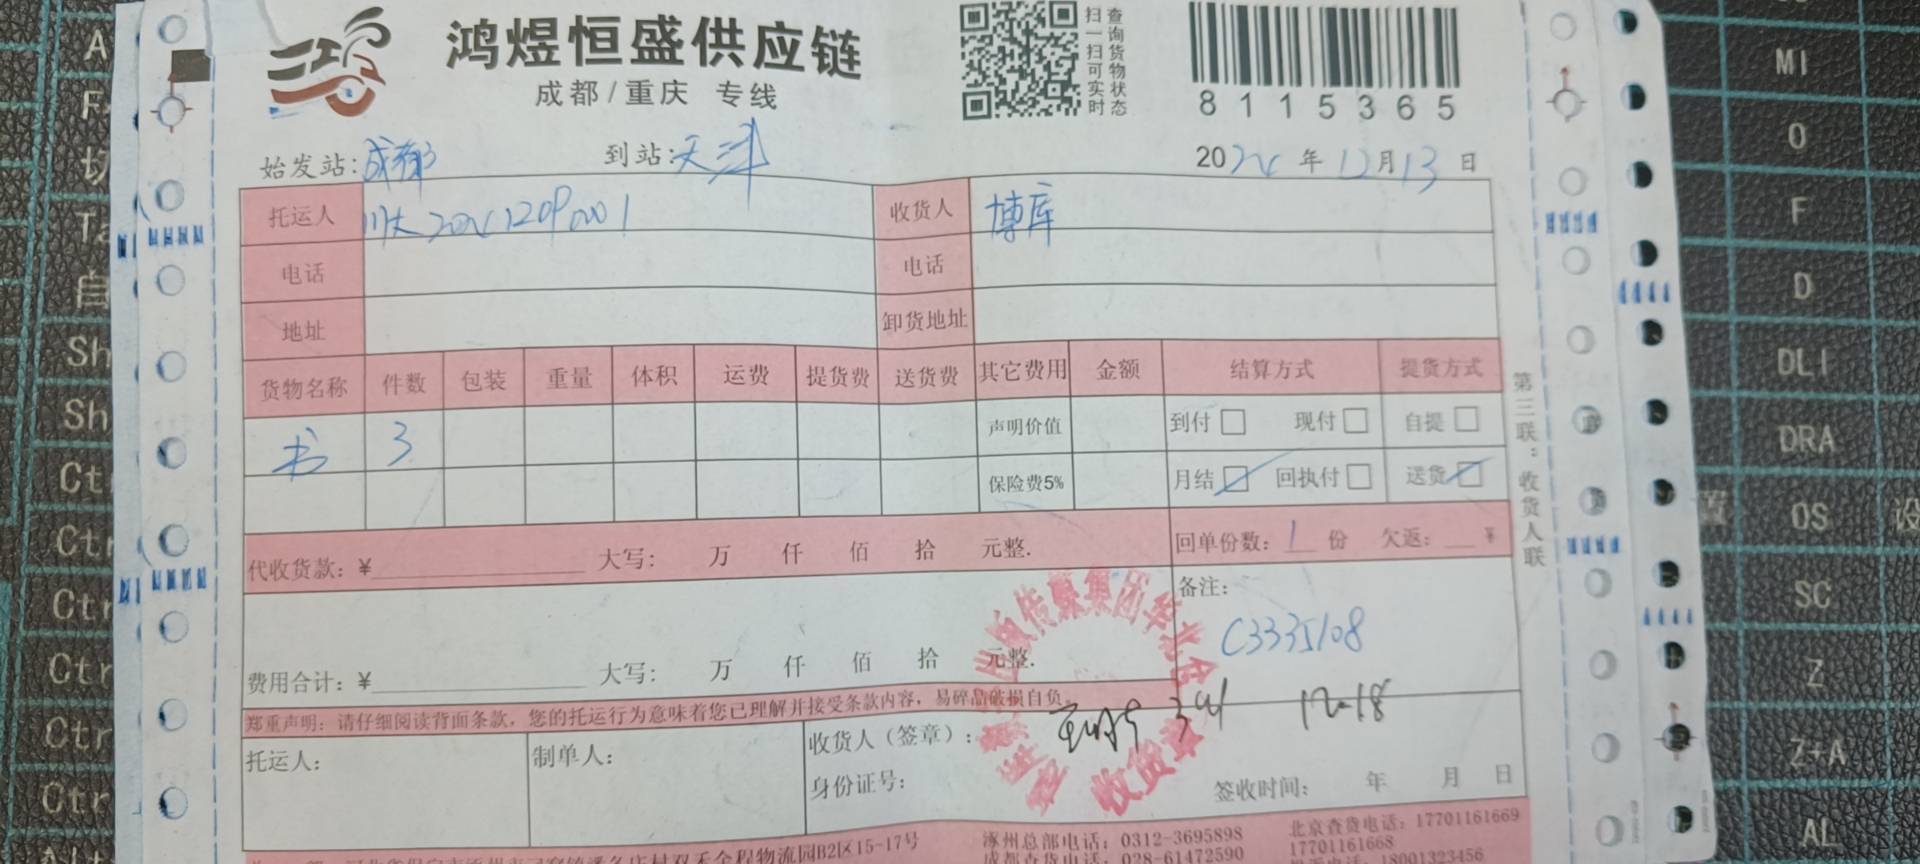 鸿煜恒盛供应链
成都/重庆 专线
扫一扫可实时
查询货物状态
8115365
始发站:成都 到站:天津 2024年12月13日
托运人 收货人 博库
电话 电话
地址 卸货地址
货物名称 件数 包装 重量 体积 运费 提货费 送货费 其它费用 金额 结算方式 提货方式
书 3 声明价值 到付 现付 自提
保险费5% 月结 回执付 送货
代收货款:¥ 大写: 万 仟 佰 拾 元整. 回单份数: 1 份 欠返: ¥
备注:
C3335108
费用合计:¥ 大写: 万 仟 佰 拾 元整.
郑重声明:请仔细阅读背面条款,您的托运行为意味着您已理解并接受条款内容,易碎品破损自负。
托运人: 制单人: 收货人(签章): 12-18
身份证号: 签收时间: 年 月 日
出版传媒集团华北
收货章
第三联:收货人联
B2区15-17号 涿州总部电话:0312-3695898 北京查货电话:17701161669
成都查货电话:028-61472590 17701161668
18001323456
MI
O
F
D
DLI
DRA
OS
SC
Z
Z+A
AL